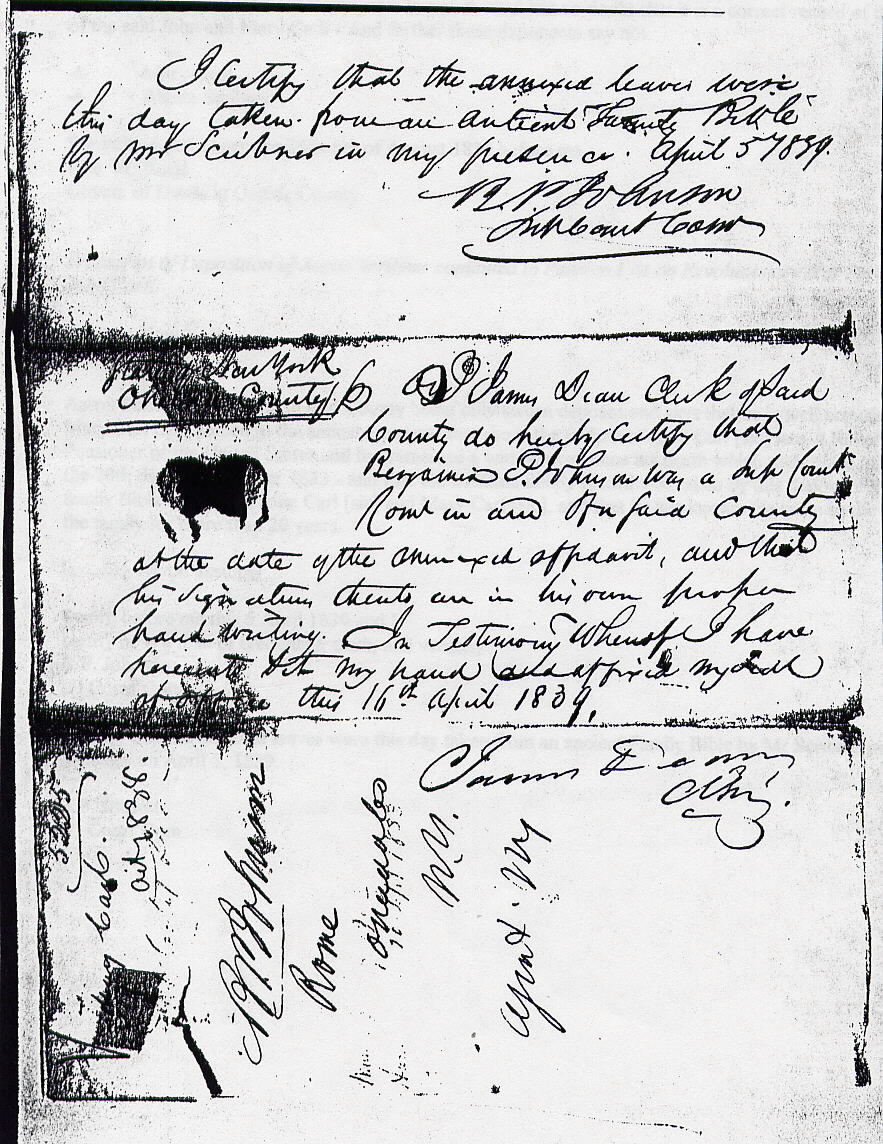 I Certify that the annexed leaves were
this day taken from an antient Family Bible
by Mr Scribner in my presence. April 5 1839.
B. P. Johnson
Sup Court Com
State of New York
County
I James Dean Clerk of said
County do hereby Certify that
Benjamin P. Johnson was a Sup Court
Com in and for said County
at the date of the annexed affidavit, and that
his signature thereto are in his own proper
hand writing. In Testimony Whereof I have
hereunto set my hand and affixed my seal
of office this 16th April 1839.
James Dean
Clk.
5205
Mary Carl.
Act 1838
B. P. Johnson
Rome
Oneida Co
N.Y.
Agent